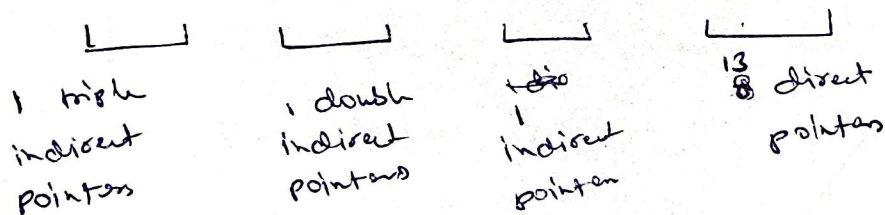 1 triple
indirect
pointers
1 double
indirect
pointers
1
indirect
pointer
13
direct
pointers